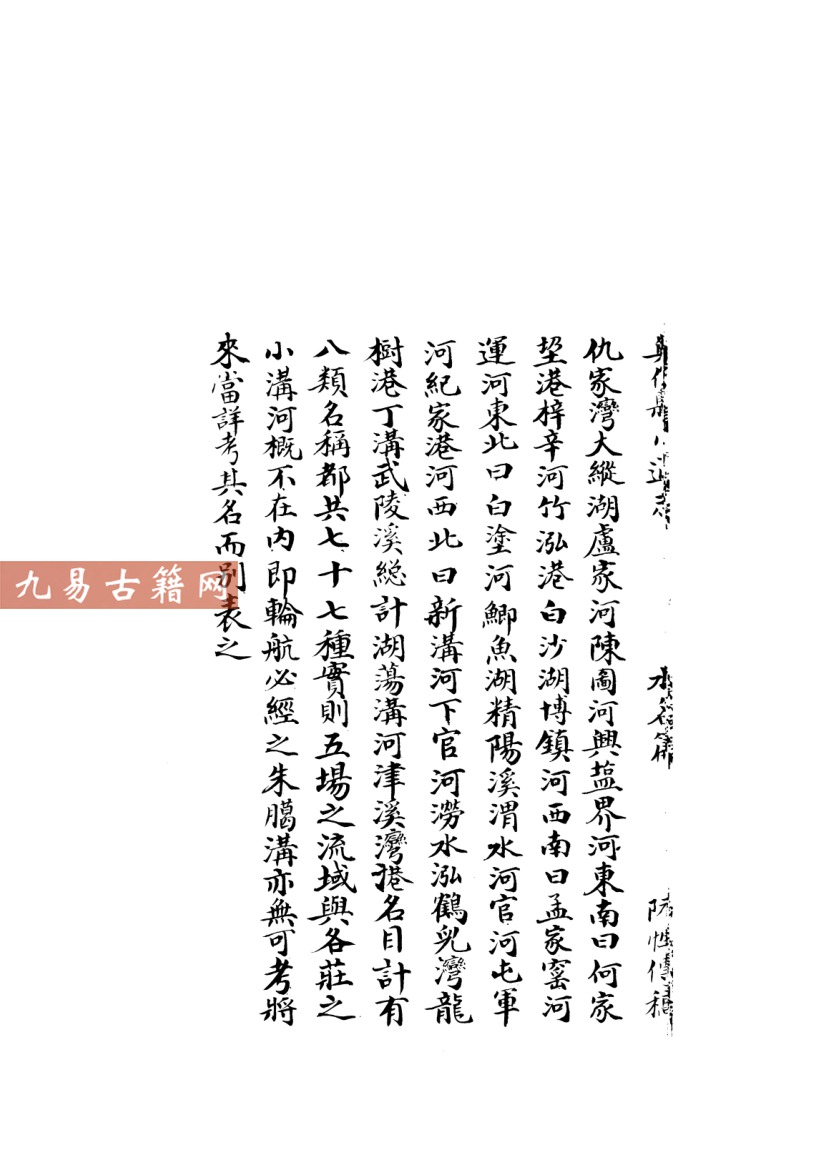 水名篇
仇家灣大縱湖盧家河陳圖河興鹽界河東南曰何家
垜港梓辛河竹泓港白沙湖博鎮河西南曰孟家窰河
運河東北曰白塗河鯽魚湖精陽溪渭水河官河屯軍
河紀家港河西北曰新溝河下官河澇水泓鶴兒灣龍
樹港丁溝武陵溪總計湖蕩溝河津溪灣港名目計有
八類名稱都共七十七種實則五場之流域與各莊之
小溝河概不在內即輪航必經之朱臈溝亦無可考將
來當詳考其名而別表之
九易古籍网